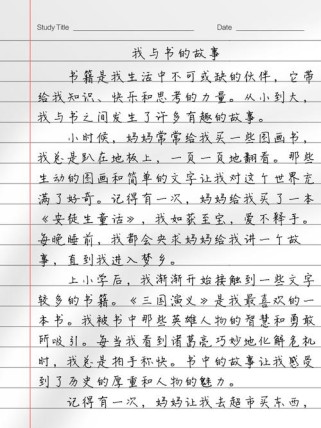 Study Title
Date
我与书的故事
书籍是我生活中不可或缺的伙伴，它带
给我知识、快乐和思考的力量。从小到大，
我与书之间发生了许多有趣的故事。
小时候，妈妈常常给我买一些图画书，
我总是趴在地板上，一页一页地翻看。那些
生动的图画和简单的文字让我对这个世界充
满了好奇。记得有一次，妈妈给我买了一本
《安徒生童话》，我如获至宝，爱不释手。
每晚睡前，我都会央求妈妈给我讲一个故
事，直到我进入梦乡。
上小学后，我渐渐开始接触到一些文字
较多的书籍。《三国演义》是我最喜欢的一
本书。我被书中那些英雄人物的智慧和勇敢
所吸引。每当我看到诸葛亮巧妙地化解危机
时，我总是拍手称快。书中的故事让我感受
到了历史的厚重和人物的魅力。
记得有一次，妈妈让我去超市买东西，